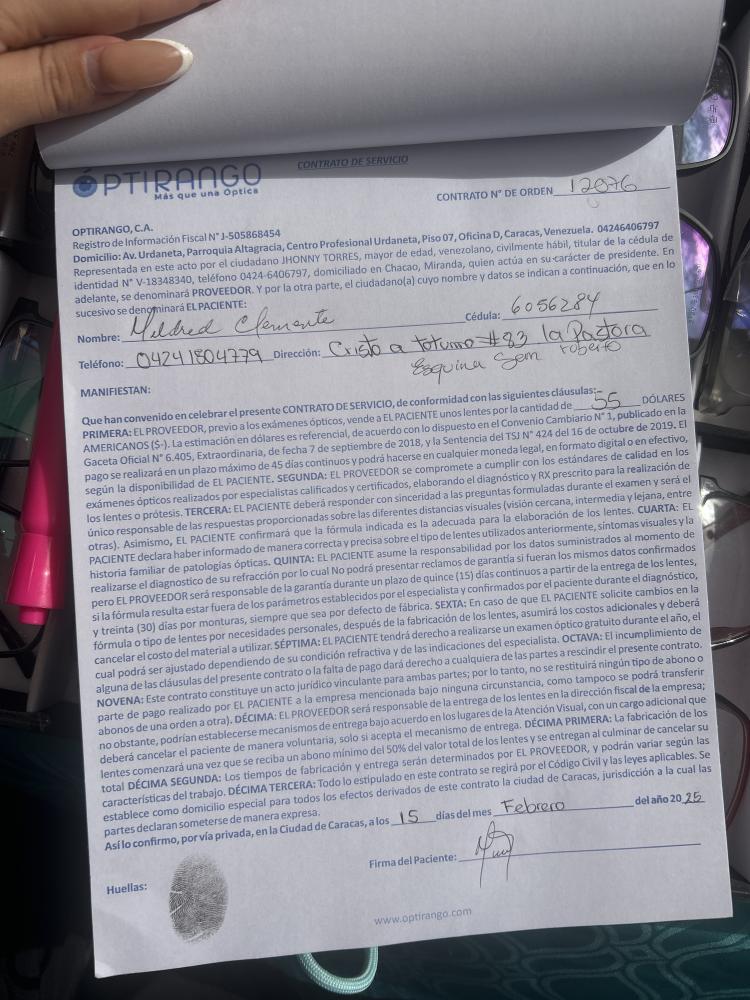 CONTRATO DE SERVICIO
ÓPTIRANGO
Más que una Óptica
CONTRATO N° DE ORDEN 12076
OPTIRANGO, C.A.
Registro de Información Fiscal N° J-505868454
Domicilio: Av. Urdaneta, Parroquia Altagracia, Centro Profesional Urdaneta, Piso 07, Oficina D, Caracas, Venezuela. 04246406797
Representada en este acto por el ciudadano JHONNY TORRES, mayor de edad, venezolano, civilmente hábil, titular de la cédula de
identidad N° V-18348340, teléfono 0424-6406797, domiciliado en Chacao, Miranda, quien actúa en su carácter de presidente. En
adelante, se denominará PROVEEDOR. Y por la otra parte, el ciudadano(a) cuyo nombre y datos se indican a continuación, que en lo
sucesivo se denominará EL PACIENTE:
Nombre: Mildred Clemente Cédula: 6056284
Teléfono: 04241804779 Dirección: Cristo a totumo #83 la Paztora
Esquina Sem roberto
MANIFIESTAN:
Que han convenido en celebrar el presente CONTRATO DE SERVICIO, de conformidad con las siguientes cláusulas:
PRIMERA: EL PROVEEDOR, previo a los exámenes ópticos, vende a EL PACIENTE unos lentes por la cantidad de 55 DÓLARES
AMERICANOS ($-). La estimación en dólares es referencial, de acuerdo con lo dispuesto en el Convenio Cambiario N° 1, publicado en la
Gaceta Oficial N° 6.405, Extraordinaria, de fecha 7 de septiembre de 2018, y la Sentencia del TSJ N° 424 del 16 de octubre de 2019. El
pago se realizará en un plazo máximo de 45 días continuos y podrá hacerse en cualquier moneda legal, en formato digital o en efectivo,
según la disponibilidad de EL PACIENTE. SEGUNDA: EL PROVEEDOR se compromete a cumplir con los estándares de calidad en los
exámenes ópticos realizados por especialistas calificados y certificados, elaborando el diagnóstico y RX prescrito para la realización de
los lentes o prótesis. TERCERA: EL PACIENTE deberá responder con sinceridad a las preguntas formuladas durante el examen y será el
único responsable de las respuestas proporcionadas sobre las diferentes distancias visuales (visión cercana, intermedia y lejana, entre
otras). Asimismo, EL PACIENTE confirmará que la fórmula indicada es la adecuada para la elaboración de los lentes. CUARTA: EL
PACIENTE declara haber informado de manera correcta y precisa sobre el tipo de lentes utilizados anteriormente, síntomas visuales y la
historia familiar de patologías ópticas. QUINTA: EL PACIENTE asume la responsabilidad por los datos suministrados al momento de
realizarse el diagnostico de su refracción por lo cual No podrá presentar reclamos de garantía si fueran los mismos datos confirmados
pero EL PROVEEDOR será responsable de la garantía durante un plazo de quince (15) días continuos a partir de la entrega de los lentes,
si la fórmula resulta estar fuera de los parámetros establecidos por el especialista y confirmados por el paciente durante el diagnóstico,
y treinta (30) días por monturas, siempre que sea por defecto de fábrica. SEXTA: En caso de que EL PACIENTE solicite cambios en la
fórmula o tipo de lentes por necesidades personales, después de la fabricación de los lentes, asumirá los costos adicionales y deberá
cancelar el costo del material a utilizar. SÉPTIMA: EL PACIENTE tendrá derecho a realizarse un examen óptico gratuito durante el año, el
cual podrá ser ajustado dependiendo de su condición refractiva y de las indicaciones del especialista. OCTAVA: El incumplimiento de
alguna de las cláusulas del presente contrato o la falta de pago dará derecho a cualquiera de las partes a rescindir el presente contrato.
NOVENA: Este contrato constituye un acto jurídico vinculante para ambas partes; por lo tanto, no se restituirá ningún tipo de abono o
parte de pago realizado por EL PACIENTE a la empresa mencionada bajo ninguna circunstancia, como tampoco se podrá transferir
abonos de una orden a otra). DÉCIMA: EL PROVEEDOR será responsable de la entrega de los lentes en la dirección fiscal de la empresa;
no obstante, podrían establecerse mecanismos de entrega bajo acuerdo en los lugares de la Atención Visual, con un cargo adicional que
deberá cancelar el paciente de manera voluntaria, solo si acepta el mecanismo de entrega. DÉCIMA PRIMERA: La fabricación de los
lentes comenzará una vez que se reciba un abono mínimo del 50% del valor total de los lentes y se entregan al culminar de cancelar su
total DÉCIMA SEGUNDA: Los tiempos de fabricación y entrega serán determinados por EL PROVEEDOR, y podrán variar según las
características del trabajo. DÉCIMA TERCERA: Todo lo estipulado en este contrato se regirá por el Código Civil y las leyes aplicables. Se
establece como domicilio especial para todos los efectos derivados de este contrato la ciudad de Caracas, jurisdicción a la cual las
partes declaran someterse de manera expresa.
Así lo confirmo, por vía privada, en la Ciudad de Caracas, a los 15 días del mes Febrero del año 20 25
Firma del Paciente:
Huellas:
www.optirango.com